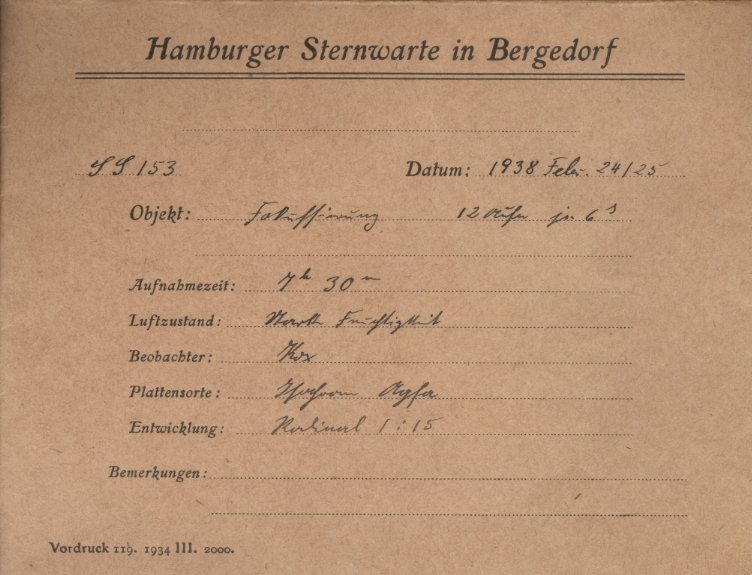 Hamburger Sternwarte in Bergedorf
SS 153 Datum: 1938 Febr. 24/25
Objekt: Fokussierung 12 Aufn je 6 s
Aufnahmezeit: 7 h 30 m
Luftzustand: Stark Feuchtigkeit
Beobachter: Kox
Plattensorte: Isochrom Agfa
Entwicklung: Rodinal 1:15
Bemerkungen:
Vordruck 119. 1934 III. 2000.